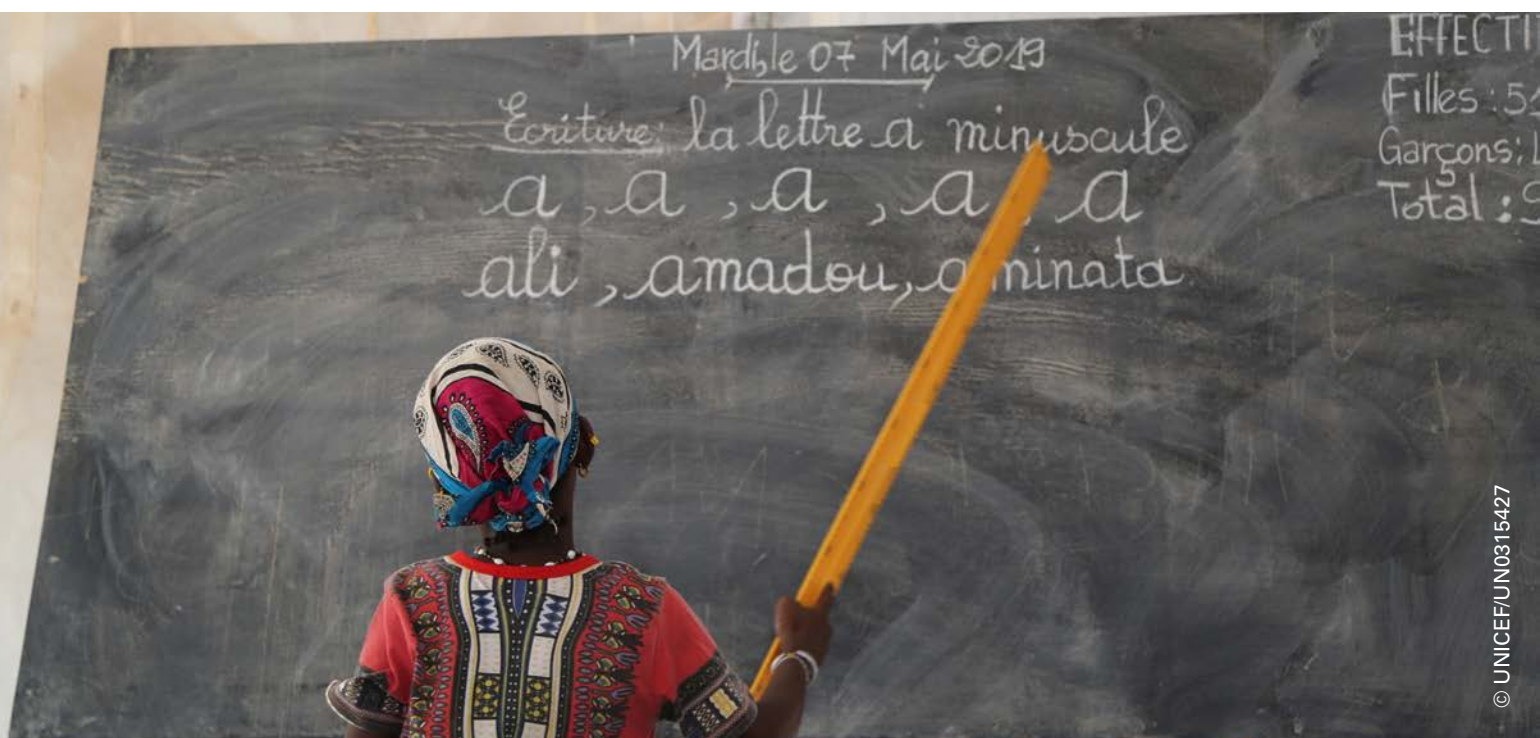 Mardi, le 07 Mai 2019
Ecriture: la lettre a minuscule
a, a, a, a, a
ali, amadou, aminata
EFFECTI
Filles : 5
Garçons:
Total :
© UNICEF/UN0315427